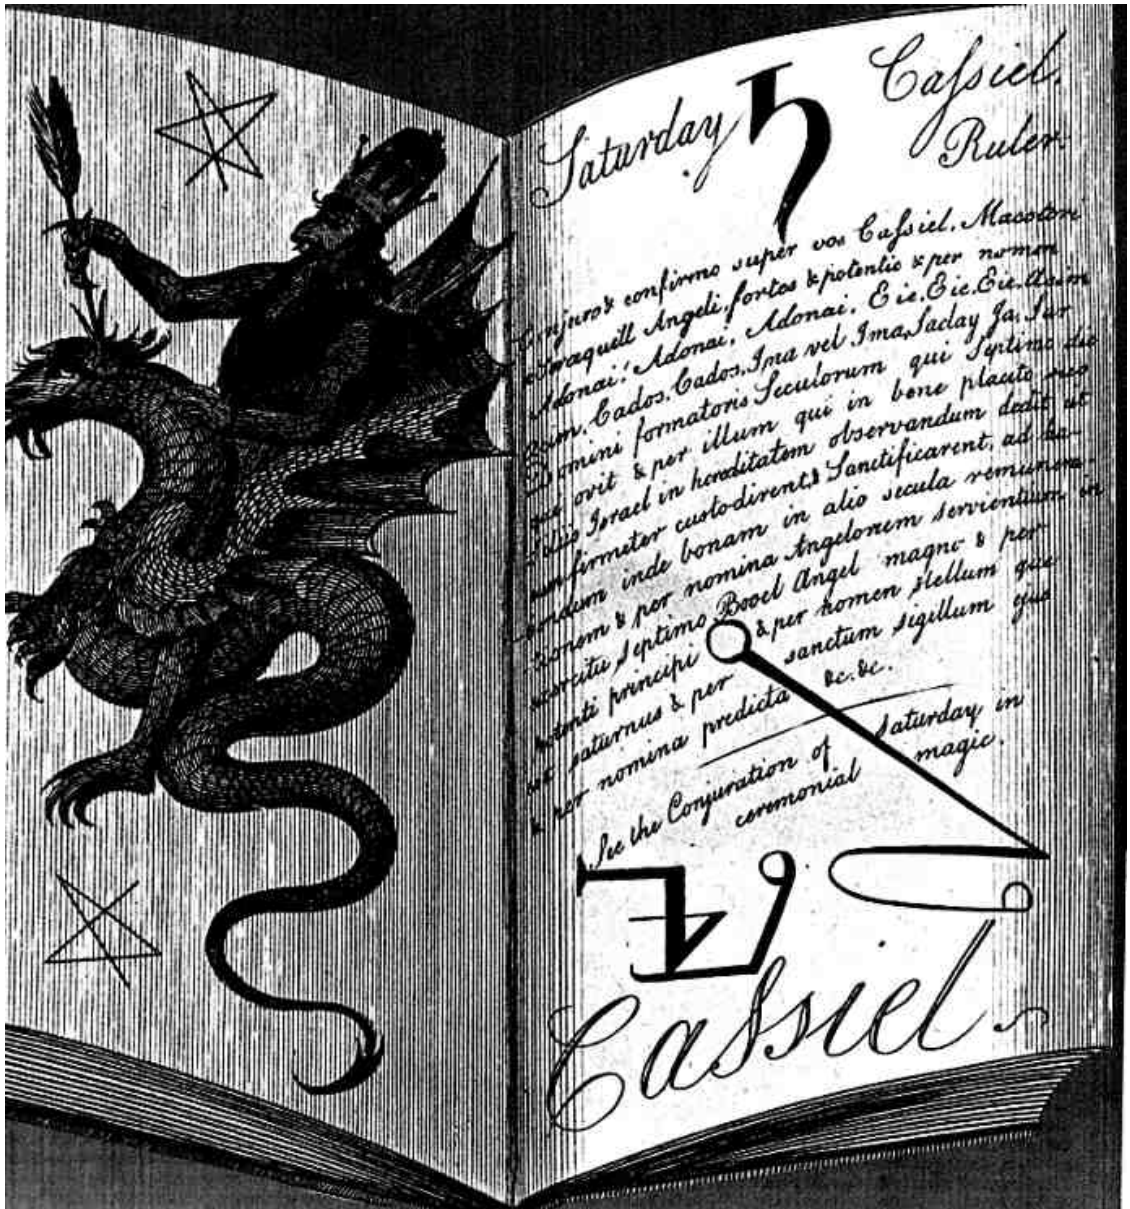 Saturday ♄ Cassiel.
Ruler.
Conjuro & confirmo super vos Cassiel, Macatori
Seraquiell Angeli, fortes & potentis & per nomen
Adonai, Adonai, Adonai, Eie, Eie, Eie, Acim
Cados, Cados, Ima vel Ima, Saday Ja, Sar
Domini formatoris Seculorum qui Septimo die
que ovit & per illum qui in bene placito suo
Israel in hereditatem observandum dedit, ut
firmeter custodirent & Sanctificarent, ad ha-
endum inde bonam in alio secula remunera-
tionem & per nomina Angelorum servientium in
exercitu Septimo Booel Angel magno & per
potenti principi & per homen stellum que
est saturnus & per sanctum sigillum quo
& per nomina predicta &c. &c.
See the Conjuration of Saturday in
ceremonial magic.
Cassiel.